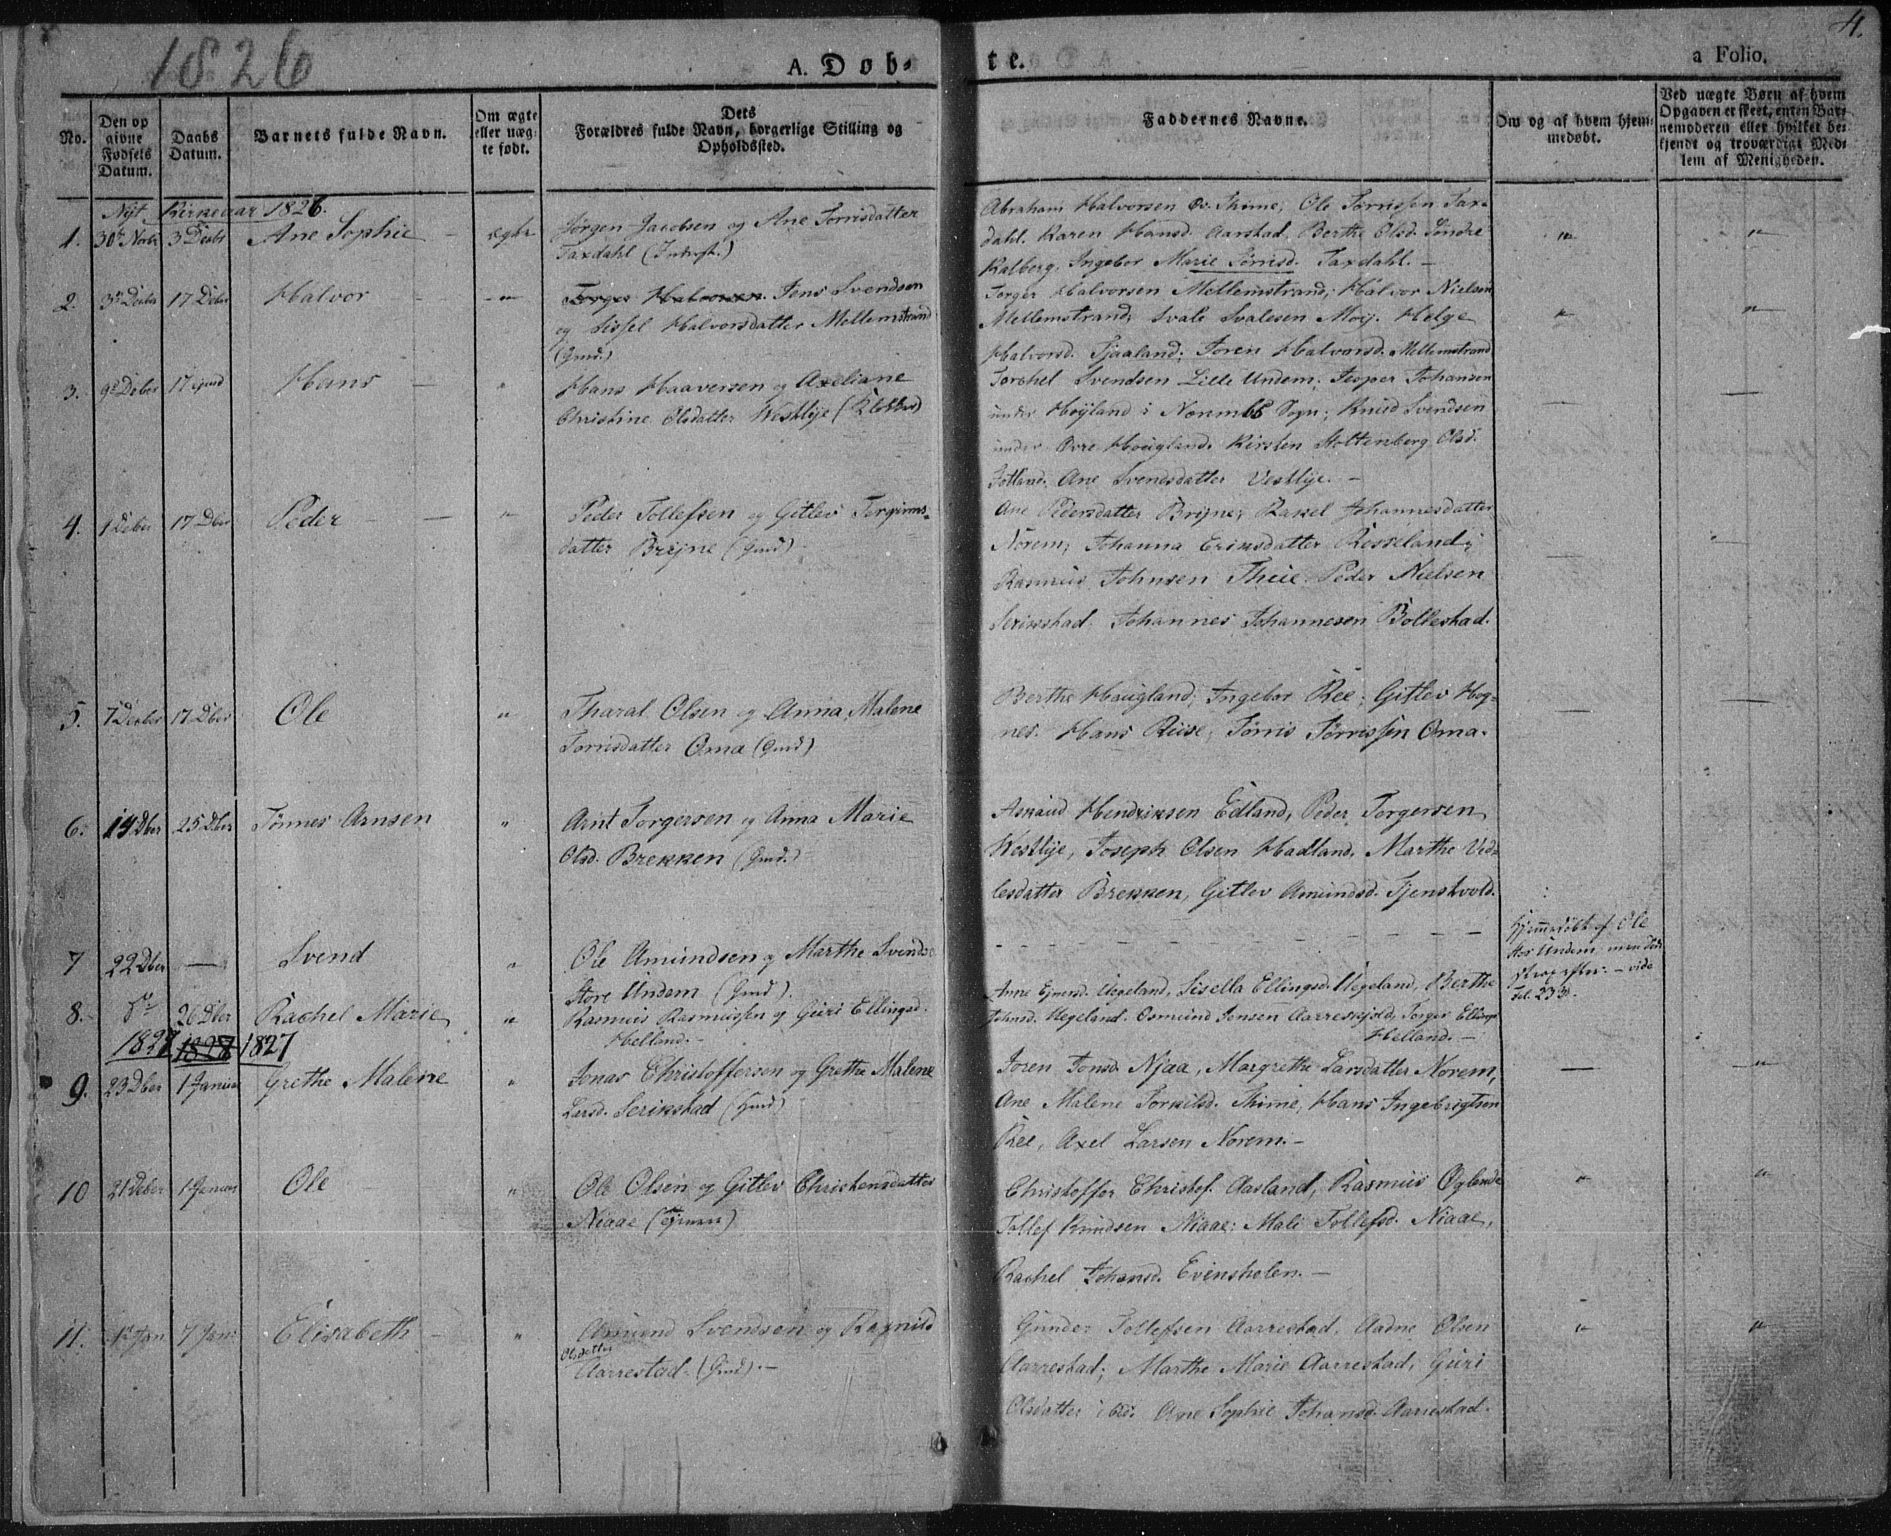 1826
A. Døb-
te.
a Folio.
4.
No.
Den op
givne
Fødsels
Datum.
Daabs
Datum.
Barnets fulde Navn.
Om ægte
eller uæg-
te født.
Dets
Forældres fulde Navn, borgerlige Stilling og
Opholdssted.
Faddernes Navne.
Om og af hvem hjem-
medøbt.
Ved uægte Børn af hvem
Opgaven er skeet, enten Bar-
nemoderen eller hvilket be-
kjendt og troværdigt Med-
lem af Menigheden.
Nyt Kirkeaar 1826.
1. 30te Novbr 3 Decbr Ane Sophie ægte Jørgen Jacobsen og Ane Torrisdatter
Taxdahl (Inderst.)
Abraham Halvorsen Øv. Thime; Ole Torrissen Tax-
dahl. Karen Hansd. Aarstad. Berthe Olsd. Søndre
Kalberg. Ingebor Marie Tørrisd. Taxdahl.
2. 3die Decbr 17 Decbr Halvor Torger Halvorsen. Jens Svendsen
og Sissel Halvorsdatter Mellemstrand
(Gmd.)
Torger Halvorsen Mellemstrand; Halvor Nielsen
Mellemstrand; Svale Svalesen Moÿ. Helge
Halvorsd. Tjaaland; Toren Halvorsd. Mellemstrand
3. 9de Deber 17 Hans Hans Haaversen og Axeliane
Christine Olsdatter Vestlije (Klokker)
Torchel Svendsen Lille Undem; Jesper Johansen
under Høÿland i Nærumbs Sogn; Knud Svendsen
under Øvre Houigland. Kirsten Stoltenberg Olsd.
Jotland. Ane Svenesdatter Vestlije.
4. 1 Deber 17 Dbr Peder Peder Tollefsen og Gitlev Torgrims-
datter Brijne (Gmd)
Ane Pedersdatter Brijne; Rakel Johannesdatter
Norem; Johanna Eriksdatter Rosseland;
Rasmus Johnsen Theie. Peder Nielsen
Serikstad. Johannes Johannesen Bollestad.
5. 7 Decbr 17 Dbr Ole Tharal Olsen og Anna Malene
Torrisdatter Oma (Gmd)
Berthe Haugland; Ingebor Ree; Gitlev Hog-
nes. Hans Riise; Tørris Tørrissen Oma.
6. 14 Dber 25 Dber Tønnes Arnsen Arnt Torgersen og Anna Marie
Olsd. Brekken (Gmd.)
Asnaud Hendriksen Edland, Peder Torgersen
Vestlije, Joseph Olsen Hadland. Marthe Ved-
lesdatter Brekken, Gitlev Amundsd. Tjensvold.
7 22 Dber Svend Ole Amundsen og Marthe Svends
Store Undem (Gmd).
hjemmedøbt af Ole
Stor Undem, men døde
strax efter. - vide
Fol. 233.
8. 26 Dber Rachel Marie Rasmus Rasmussen og Guri Ellingsd.
Helland.
Anne Ejnersd. Uegeland, Sisella Ellingsd. Uegeland, Berthe
Johnsd. Uegeland. Osmund Jonsen Aarreskjold. Torger Ellings
Helland.
1827 1828 1827
9. 23 Dber 1 Januar Grethe Malene Jonas Christoffersen og Grethe Malene
Larsd. Serikstad (Gmd)
Toren Tonsd. Njaa, Margrethe Larsdatter Norem,
Ane Malene Torkilsd. Thime, Hans Ingebrigtsen
Ree, Axel Larsen Norem.
10 21 Deber 1 Januar Ole Ole Olsen og Gitlev Christensdatter
Niaae
Christoffer Christof. Aasland, Rasmus Øglende
Tollef Knudsen Niaae; Mali Tollefsd. Niaae,
Rachel Johansd. Evensholen.
11. 1ste Jan 7 Jan Elisabeth Amund Svendsen og Ragnild
Olsdatter
Aarrestad. (Gmd).
Gunder Tollefsen Aarrestad. Aadne Olsen
Aarrestad; Marthe Marie Aarrestad; Guri
Olsdatter ibid. Ane Sophie Johansd. Aarrestad.